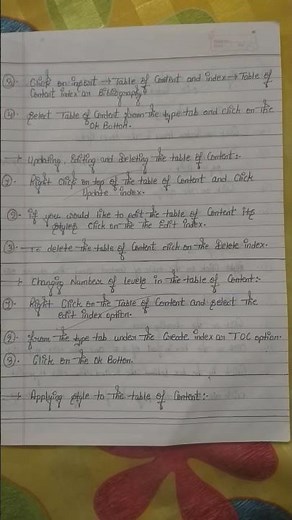 ③- Click on insert → Table of Content and index → Table of
Content index or Bibliography.
④ Select Table of Content from the type tab and click on the
Ok Botton.
→ Updating, Editing and Deleting the table of Content:-
①- Right Click on top of the table of Content and Click
Update index.
②- if you would like to edit the table of Content its
styles Click on the the Edit index.
③- To delete the table of Content click on the Delete index.
→ Changing Number of levels in the table of Content:-
①- Right Click on the Table of Content and select the
edit index option.
②- from the type tab under the Create index or TOC option.
③- Click on the Ok Botton.
→ Applying style to the table of Content:-